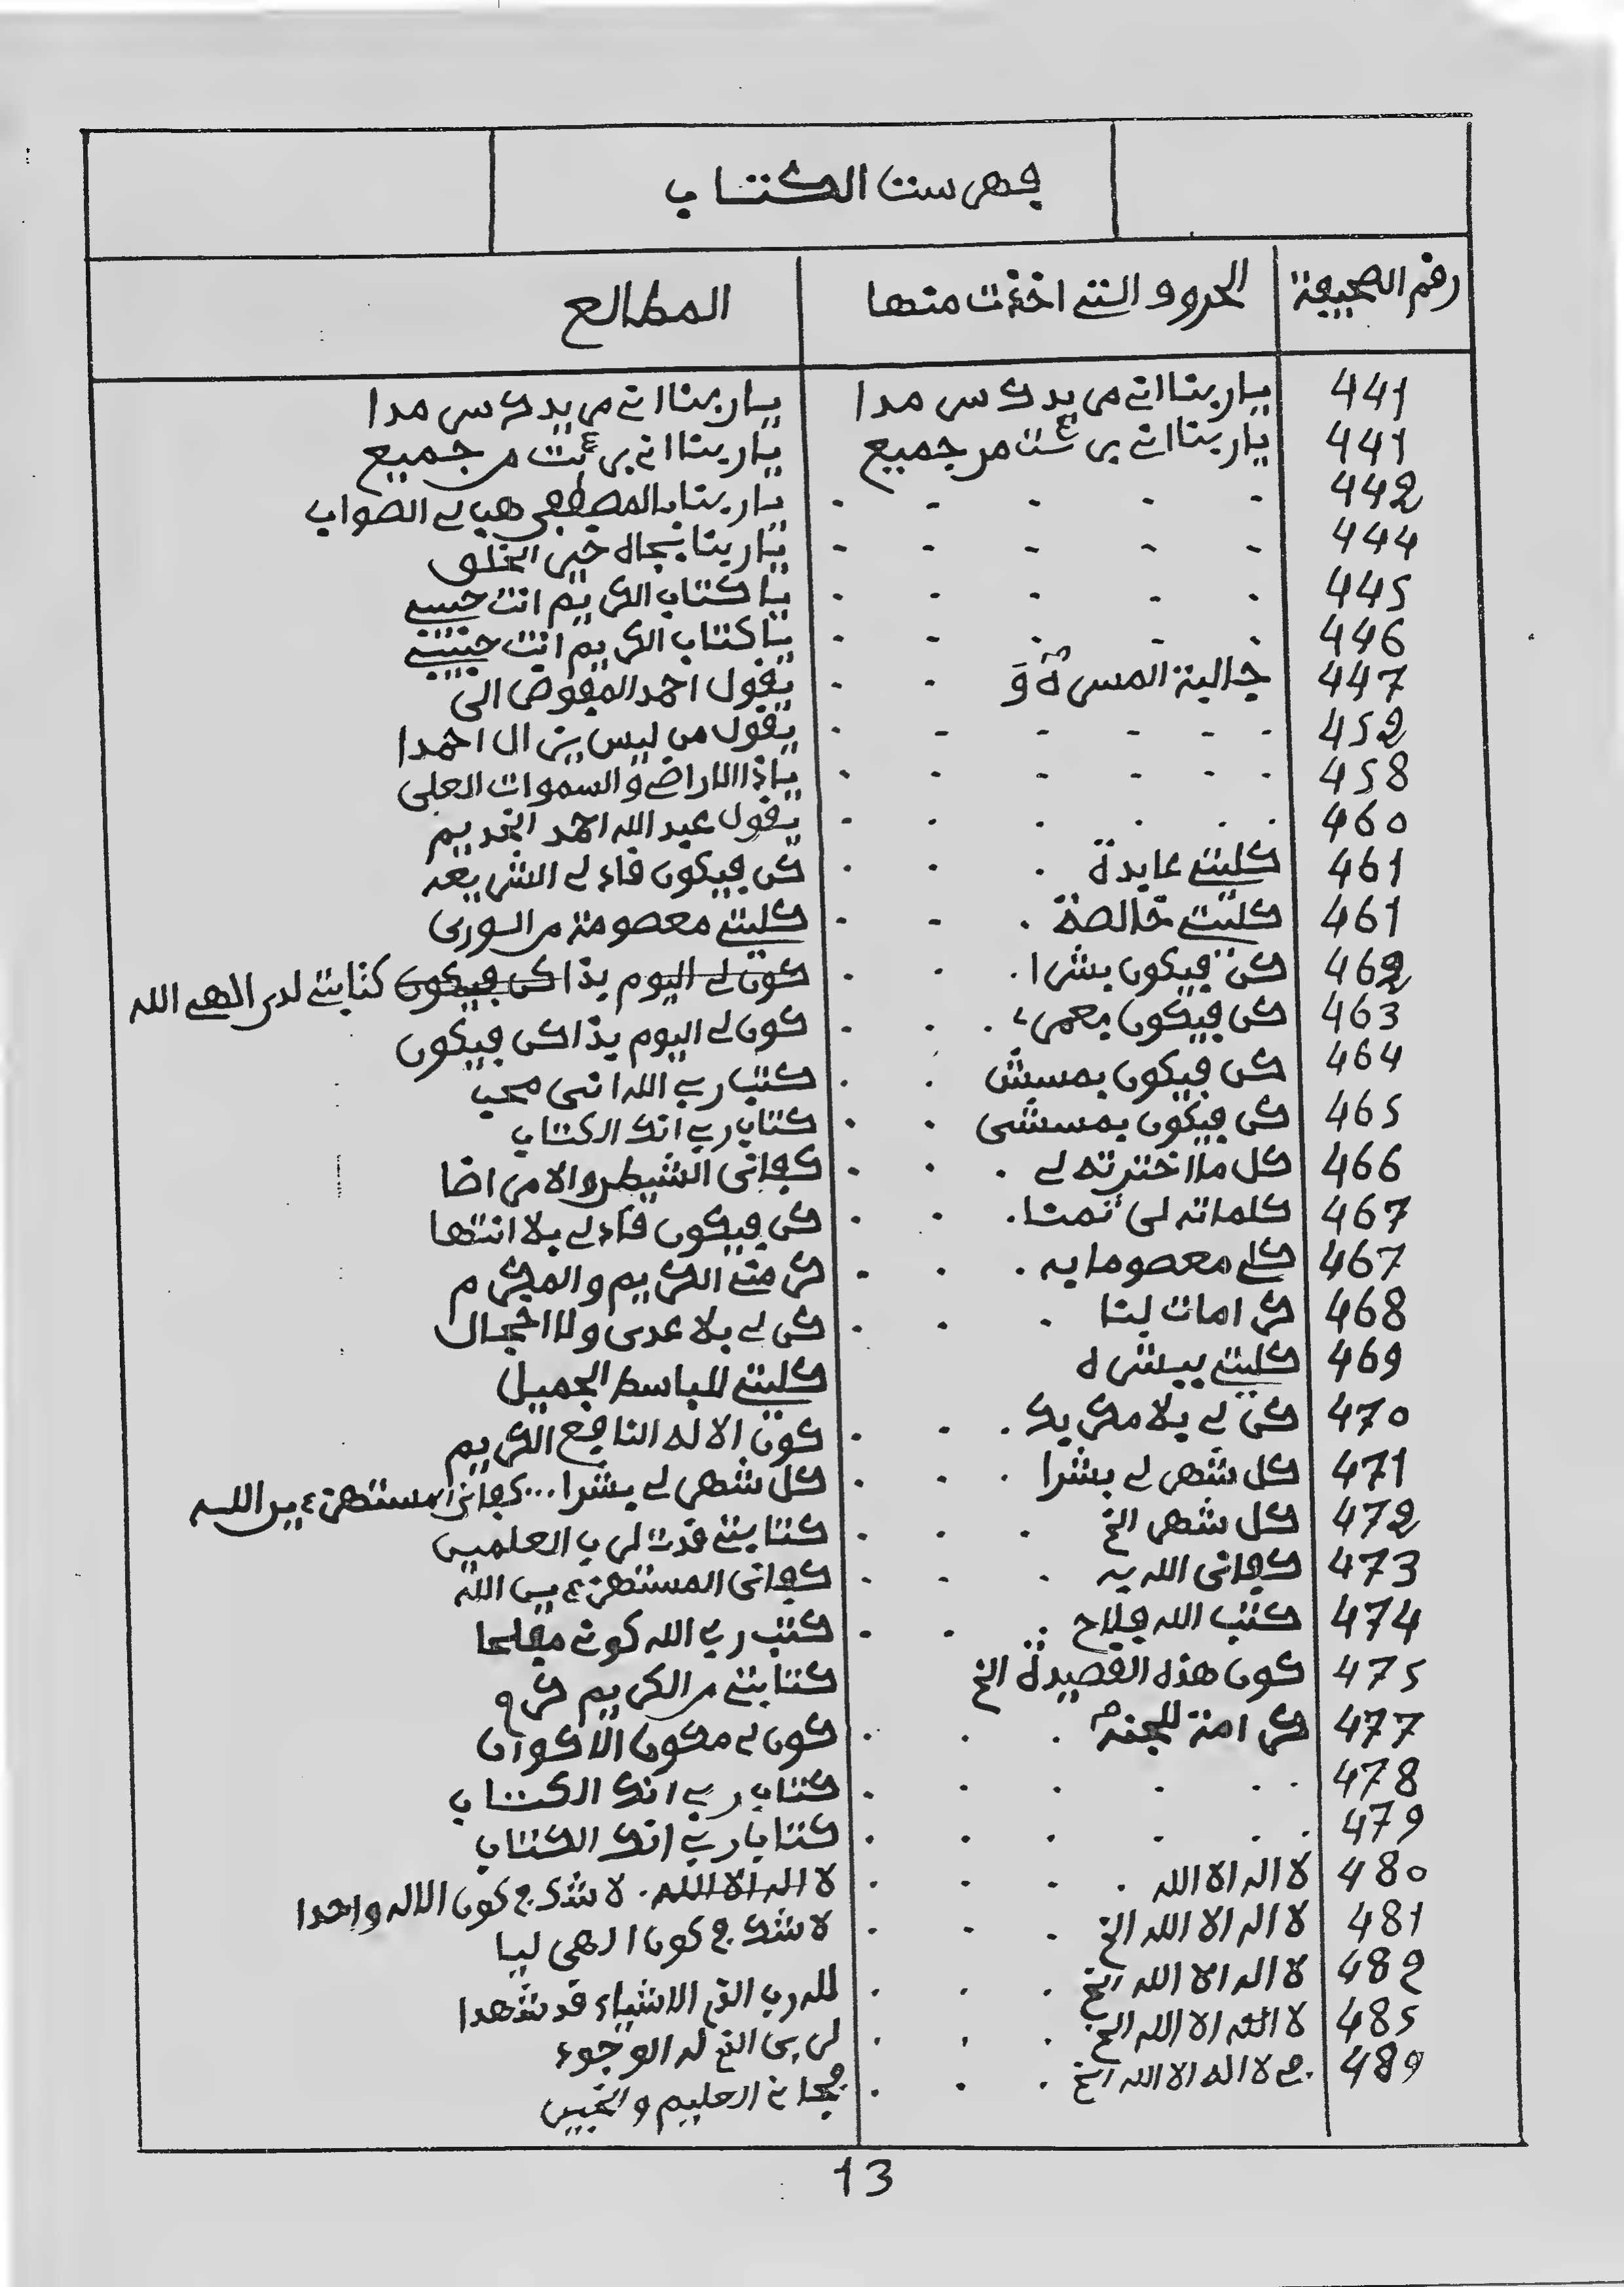 فهرست الكتاب
رقم الصحيفة الحروف التي اخذت منها المطالع
441 يا ربنا اني من يدك سر مدا يا ربنا اني من يدك سر مدا
441 يا ربنا اني برئت من جميع يا ربنا اني برئت من جميع
442 يا ربنا بالمصطفى هب لي الصواب
444 يا ربنا بجاه خير الخلق
445 يا كتاب الكريم انت حبيبي
446 يا كتاب الكريم انت حبيبي
447 جالبة المسرة و يقول احمد المفوض الى
452 يقول من ليس يزال احمدا
458 يا ذا الاراضي والسموات العلى
460 يقول عبد الله احمد الخديم
461 كليتي عابدة كن فيكون قاد لي الشريعه
461 كليتي خالصة كليتي معصومة من الورى
462 كن فيكون بشرا كون لي اليوم بذا كن فيكون كتابتي لدى الهي الله
463 كن فيكون بعمر كون لي اليوم بذا كن فيكون
464 كن فيكون بمسش كتب رب الله اني محب
465 كن فيكون بمسشى كتاب رب انك الكتاب
466 كل ما اخترته لي كفاني الشيطن والامراضا
467 كلماته لى تمتا كن فيكون قاد لي بلا انتها
467 كلي معصوما به كرمني الكريم والمكرم
468 كرامات لنا كن لي بلا عدى ولا اخجال
469 كليتي ببشره كليتي للباسط الجميل
470 كن لي بلا مكر يك كون الاله النافع الكريم
471 كل شهر لي بشرا كل شهر لي بشرا ... كفاني المستهزءين الله
472 كل شهر الخ كتابتي قدت لرب العلمين
473 كفاني الله به كفاني المستهزءين الله
474 كتب الله فلاح كتب رب الله كوني مفلحا
475 كون هذه القصيدة الخ كتابتي من الكريم
477 كرامة للجنة كون لي مكون الاكوان
478 كتاب رب انك الكتاب
479 كتاب رب انك الكتاب
480 لا اله الا الله لا اله الا الله . لا شك في كون الاله واحدا
481 لا اله الا الله الخ لا شك في كون الهي ليا
482 لا اله الا الله الخ لله رب الخ الاشياء قد شهدا
485 لا اله الا الله الخ لربي الخ له الوجوه
489 في لا اله الا الله الخ العليم والخبير
13